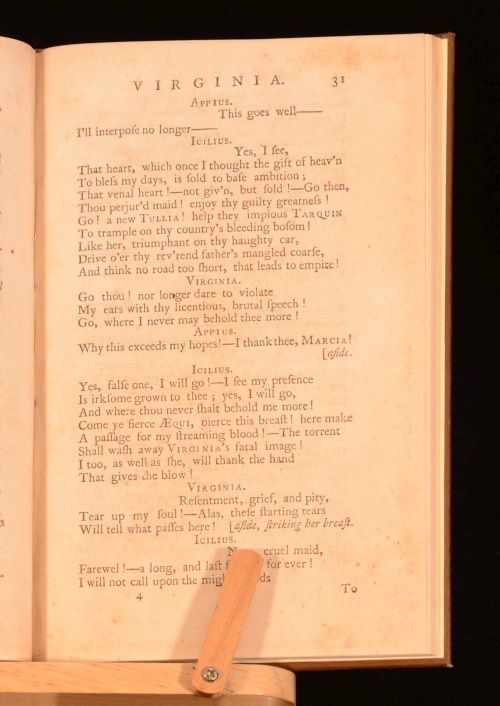 VIRGINIA. 31
APPIUS.
This goes well——
I'll interpoſe no longer——
ICILIUS.
Yes, I ſee,
That heart, which once I thought the gift of heav'n
To bleſs my days, is ſold to baſe ambition;
That venal heart!—not giv'n, but ſold!—Go then,
Thou perjur'd maid! enjoy thy guilty greatneſs!
Go! a new TULLIA! help they impious TARQUIN
To trample on thy country's bleeding boſom!
Like her, triumphant on thy haughty car,
Drive o'er thy rev'rend father's mangled coarſe,
And think no road too ſhort, that leads to empire!
VIRGINIA.
Go thou! nor longer dare to violate
My ears with thy licentious, brutal ſpeech!
Go, where I never may behold thee more!
APPIUS.
Why this exceeds my hopes!—I thank thee, MARCIA!
[aſide.
ICILIUS.
Yes, falſe one, I will go!—I ſee my preſence
Is irkſome grown to thee; yes, I will go,
And where thou never ſhalt behold me more!
Come ye fierce ÆQUI, pierce this breaſt! here make
A paſſage for my ſtreaming blood!—The torrent
Shall waſh away VIRGINIA's fatal image!
I too, as well as ſhe, will thank the hand
That gives the blow!
VIRGINIA.
Reſentment, grief, and pity,
Tear up my ſoul!—Alas, theſe ſtarting tears
Will tell what paſſes here! [aſide, ſtriking her breaſt.
ICILIUS.
cruel maid,
Farewel!—a long, and laſt for ever!
I will not call upon the
4 To